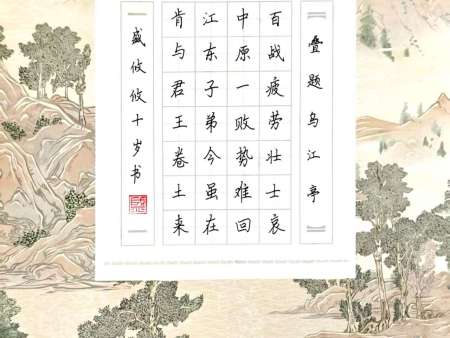 叠题乌江亭
百战疲劳壮士哀
中原一败势难回
江东子弟今虽在
肯与君王卷土来
盛攸攸十岁书